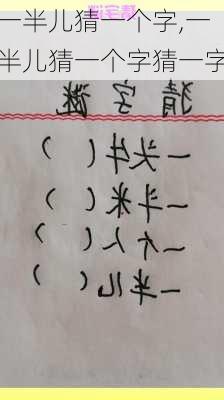 一半儿猜一个字,一
半儿猜一个字猜一字
猜 字 谜
一头牛( )
一斗米( )
一个人( )
一半儿( )